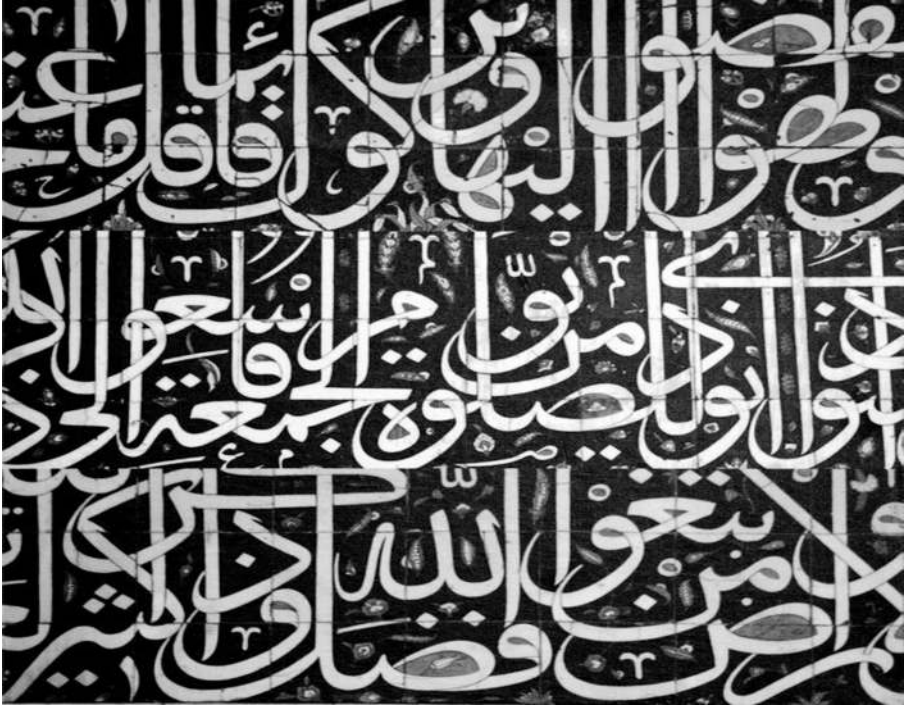 انفضوا اليها وتركوك قائما قل ما عند
اٰمنوا اذا نودي للصلوة من يوم الجمعة فاسعوا الى ذكر
الارض وابتغوا من فضل الله واذكروا كثيرا